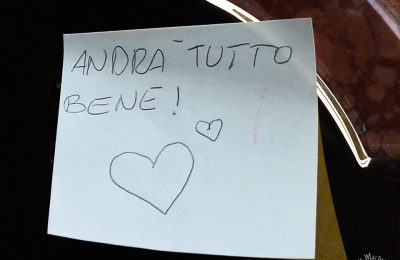 ANDRÀ TUTTO
BENE!